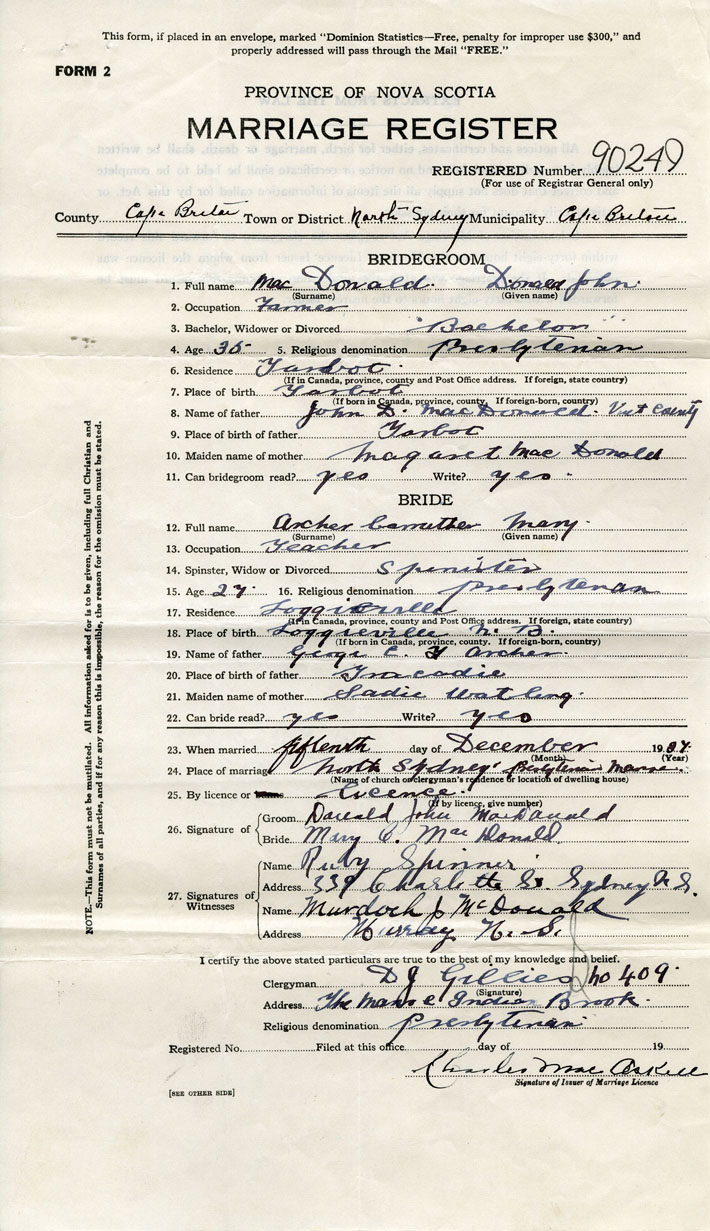 This form, if placed in an envelope, marked "Dominion Statistics—Free, penalty for improper use $300," and
properly addressed will pass through the Mail "FREE."
FORM 2
PROVINCE OF NOVA SCOTIA
MARRIAGE REGISTER
REGISTERED Number 90249
(For use of Registrar General only)
County Cape Breton Town or District North Sydney Municipality Cape Breton
BRIDEGROOM
1. Full name Mac Donald Donald John
(Surname) (Given name)
2. Occupation Farmer
3. Bachelor, Widower or Divorced "Bachelor"
4. Age 35 5. Religious denomination Presbyterian
6. Residence Tarbot
(If in Canada, province, county and Post Office address. If foreign, state country)
7. Place of birth Tarbot
(If born in Canada, province, county. If foreign-born, country)
8. Name of father John D. MacDonald. Vict County
9. Place of birth of father Tarbot
10. Maiden name of mother Margaret Mac Donald
11. Can bridegroom read? yes Write? yes
BRIDE
12. Full name Archer Mary
(Surname) (Given name)
13. Occupation Teacher
14. Spinster, Widow or Divorced Spinister
15. Age 27 16. Religious denomination Presbyterian
17. Residence Loggieville
(If in Canada, province, county and Post Office address. If foreign, state country)
18. Place of birth Loggieville N. B.
(If born in Canada, province, county. If foreign-born, country)
19. Name of father Archer
20. Place of birth of father Tracadie
21. Maiden name of mother Sadie Watling
22. Can bride read? yes Write? yes
23. When married fifteenth day of December 1937
(Month) (Year)
24. Place of marriage North Sydney Manse
(Name of church or clergyman's residence or location of dwelling house)
25. By licence or Licence
(If by licence, give number)
26. Signature of
Groom Donald John MacDonald
Bride Mary C. MacDonald
27. Signatures of Witnesses
Name Ruby Spinner
Address 339 Charlotte St. Sydney N.S.
Name Murdoch J McDonald
Address Murray N. S.
I certify the above stated particulars are true to the best of my knowledge and belief.
Clergyman D J Gillies no 409
(Signature)
Address The Manse Indian Brook
Religious denomination Presbyterian
Registered No. Filed at this office day of 19
Charles MacAskill
Signature of Issuer of Marriage Licence
[SEE OTHER SIDE]
NOTE.—This form must not be mutilated. All information asked for is to be given, including full Christian and
Surnames of all parties, and if for any reason this is impossible, the reason for the omission must be stated.